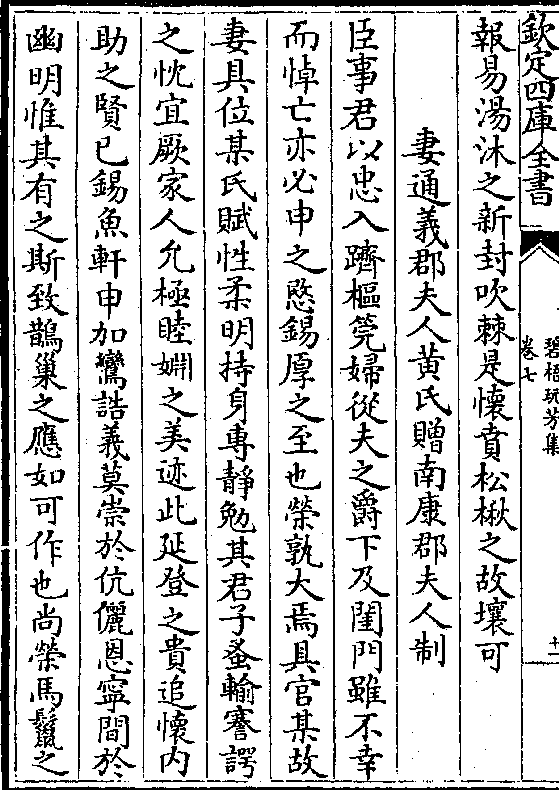 欽定四庫全書
碧梧玩芳集
卷七
十
報易湯沐之新封吹棘是懷賁松楸之故壤可
妻通義郡夫人黄氏贈南康郡夫人制
臣事君以忠入躋樞筦婦從夫之爵下及閨門雖不幸
而悼亡亦必申之愍錫厚之至也榮孰大焉具官某故
妻具位某氏賦性柔明持身專靜勉其君子蚤輸謇諤
之忱宜厥家人允極睦婣之美迹此延登之貴追懷内
助之賢已錫魚軒申加鸞誥義莫崇於伉儷恩寧間於
幽明惟其有之斯致鵲巢之應如可作也尚榮馬鬛之